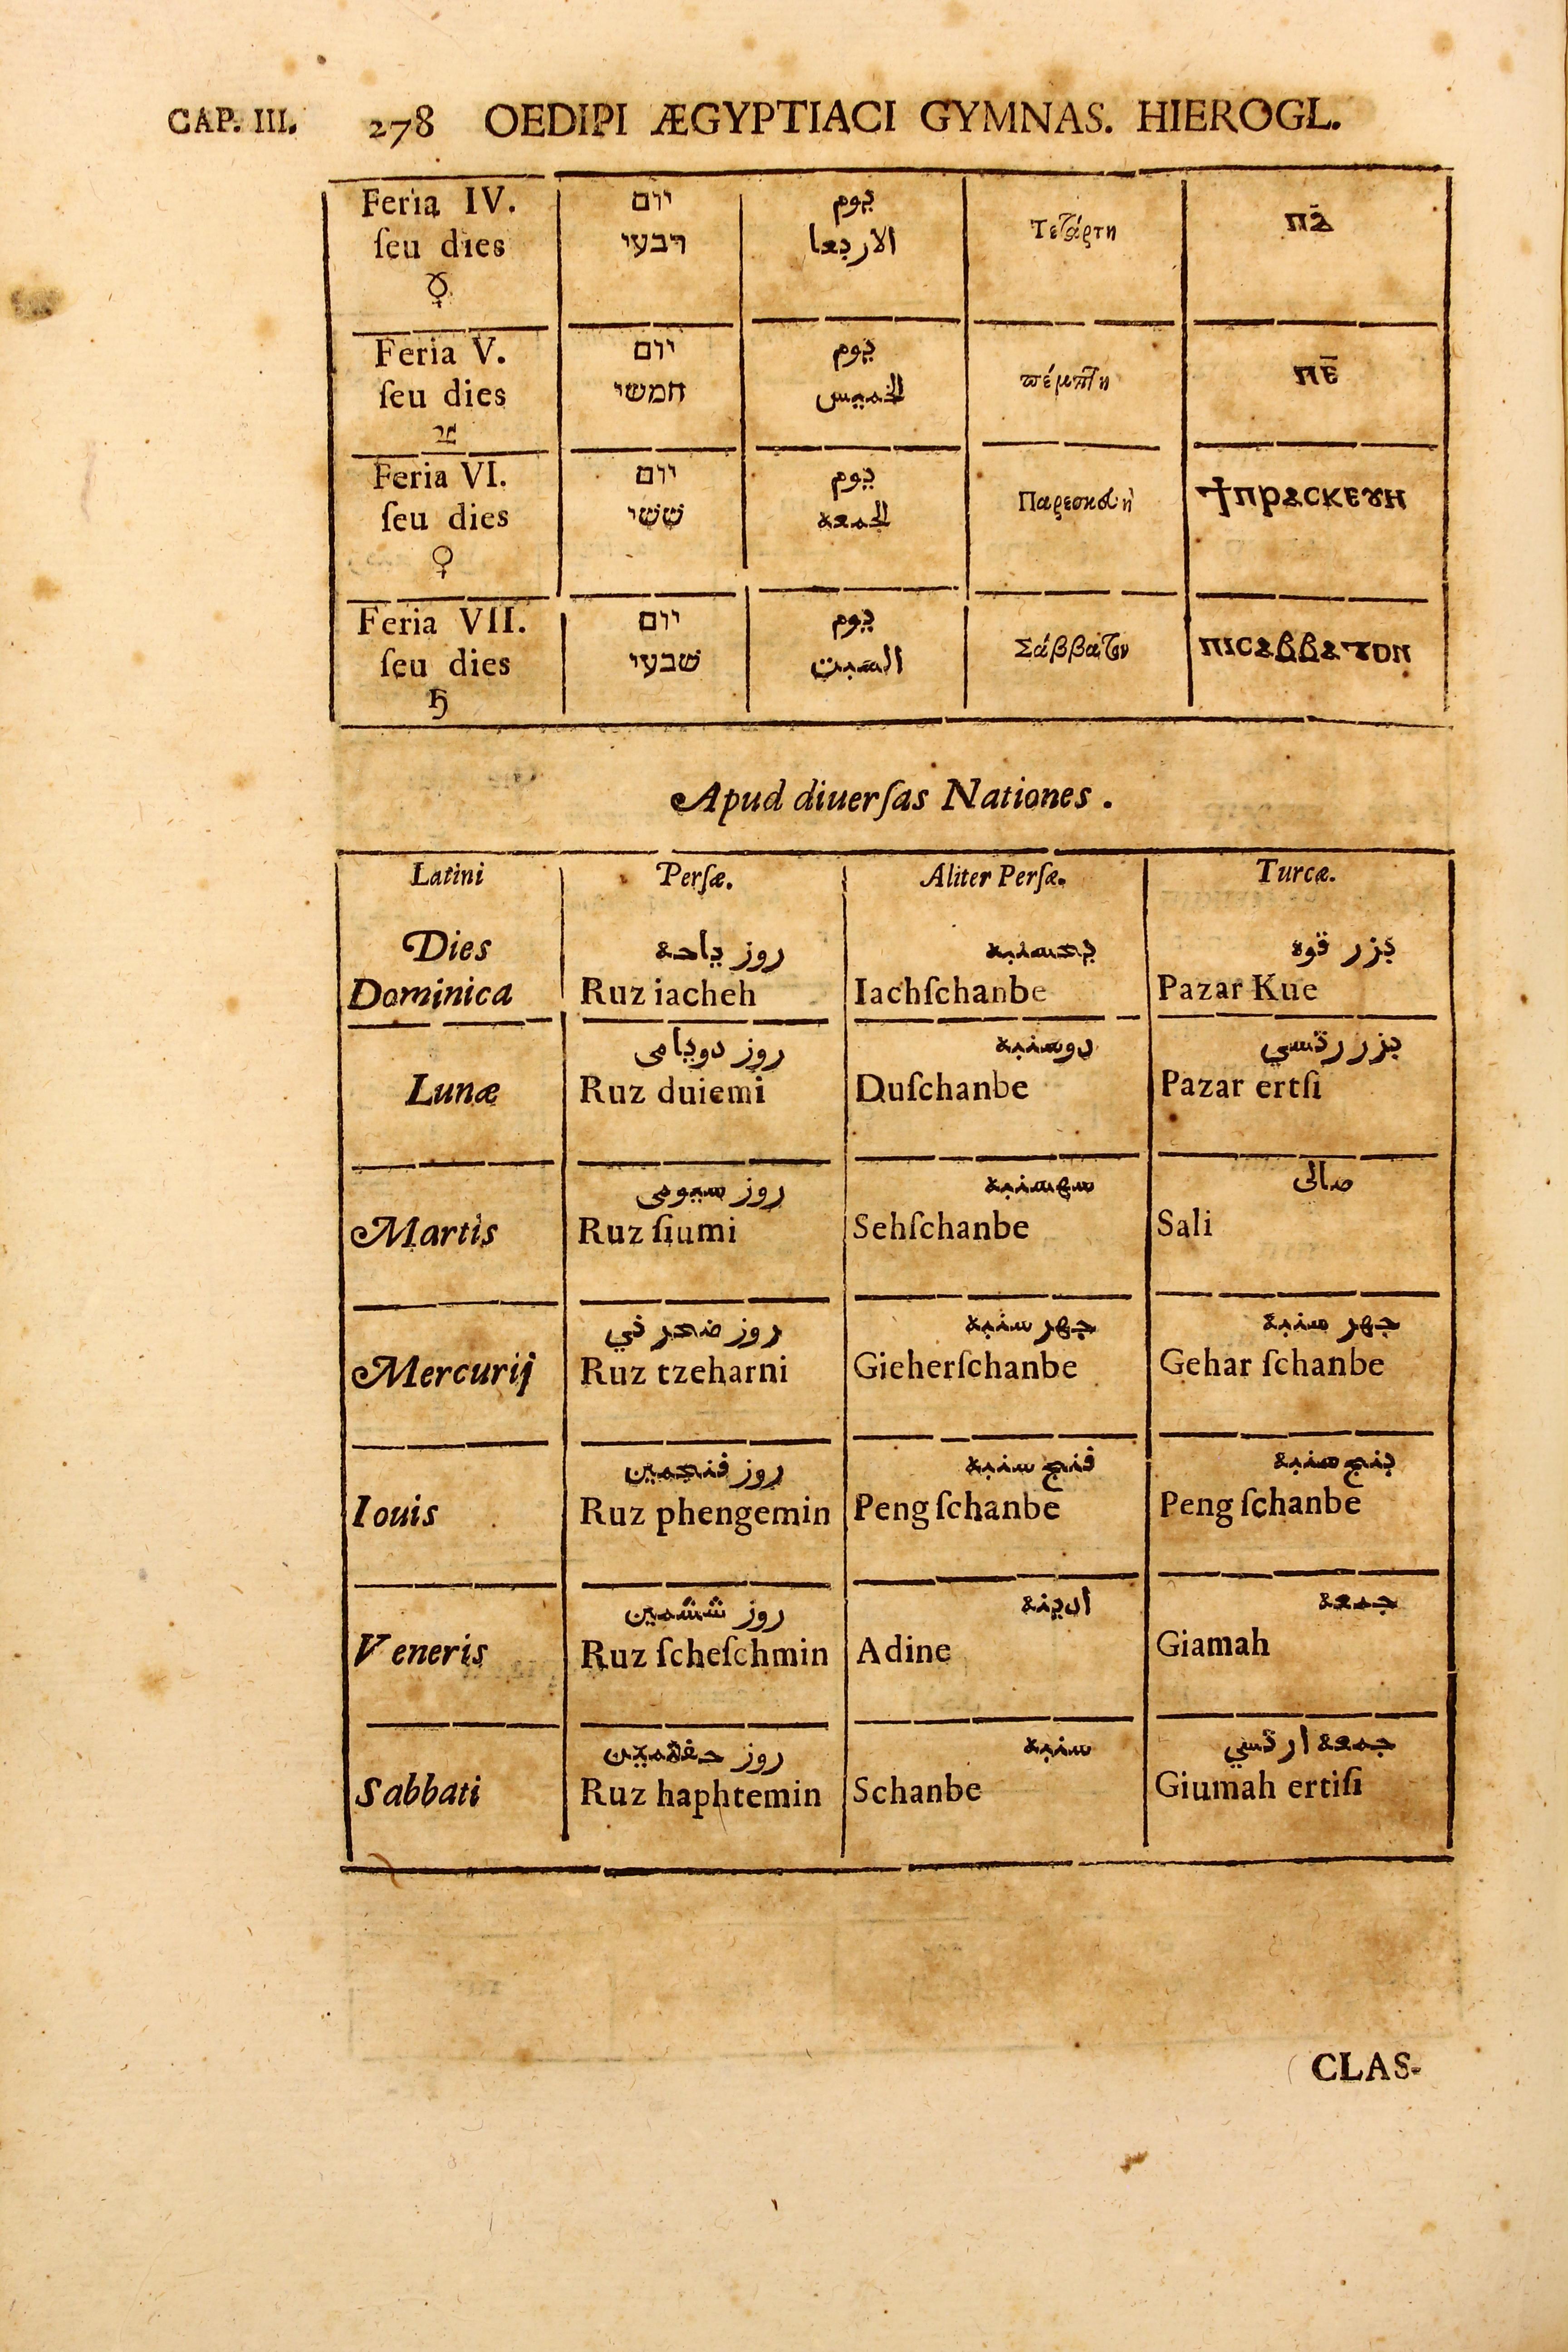 CAP. III. 278 OEDIPI ÆGYPTIACI GYMNAS. HIEROGL.
Feria IV. יום يوم Τετάρτη ⲡⲇ̄
ſeu dies רבעי الاربعا
☿
Feria V. יום يوم πέμπτη ⲡⲉ̄
ſeu dies חמשי الخميس
♃
Feria VI. יום يوم Παρεσκευὴ ϯⲡⲣⲁⲥⲕⲉⲩⲏ
ſeu dies ששי الجمعة
♀
Feria VII. יום يوم Σάββατον ⲡⲓⲥⲁⲃⲃⲁⲧⲟⲛ
ſeu dies שבעי السبت
♄
Apud diuerſas Nationes.
Latini Perſæ. Aliter Perſæ. Turcæ.
Dies روز ياحه يحسنبه بزر قوه
Dominica Ruz iacheh Iachſchanbe Pazar Kue
روز دويامى دوسنبه بزر رتسي
Lunæ Ruz duiemi Duſchanbe Pazar ertſi
روز سيومى سهسنبه صالى
Martis Ruz ſiumi Sehſchanbe Sali
روز ضحر ني جهر سنبه جهر سنبه
Mercurij Ruz tzeharni Gieherſchanbe Gehar ſchanbe
روز فنجمين فنج سنبه بنج سنبه
Iouis Ruz phengemin Peng ſchanbe Peng ſchanbe
روز ششمين ادينه جمعه
Veneris Ruz ſcheſchmin Adine Giamah
روز حفتمين سنبه جمعه ارتسي
Sabbati Ruz haphtemin Schanbe Giumah ertiſi
CLAS-